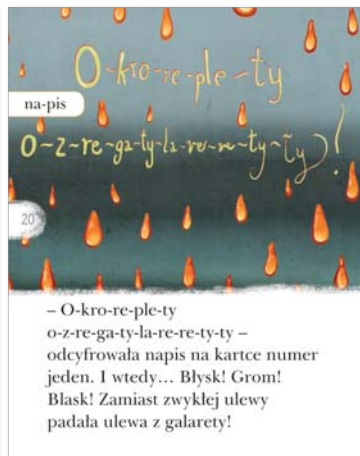 O-kro-re-ple-ty
na-pis
o-z-re-ga-ty-la-re-re-ty-ty!
20
– O-kro-re-ple-ty
o-z-re-ga-ty-la-re-re-ty-ty –
odcyfrowała napis na kartce numer
jeden. I wtedy… Błysk! Grom!
Blask! Zamiast zwykłej ulewy
padała ulewa z galarety!